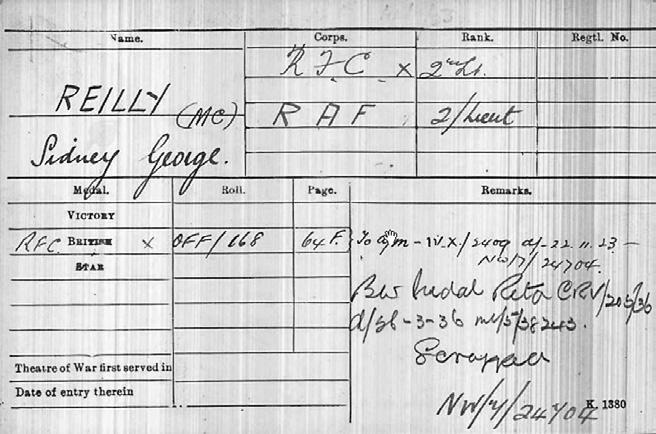 Name. Corps. Rank. Regtl. No.
R F C x 2nd Lt.
REILLY (MC) R A F 2/Lieut
Sidney George.
Medal. Roll. Page. Remarks.
VICTORY
RFC BRITISH x OFF/168 64 F. } To - IV.X./2409 d/-22.11.23 -
STAR NW/7/24704.
BW Medal Retd CRV/205/36
d/56-3-36 /5/38243.
Scrapped
Theatre of War first served in
Date of entry therein
NW/7/24704 K. 1380